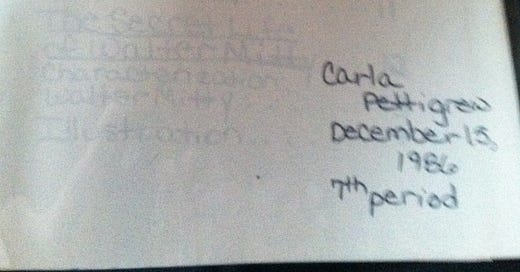 The Secret Life
of Walter Mitty
Characterization
Walter Mitty
Illustration
Carla
Pettigrew
December 15,
1986
7th period